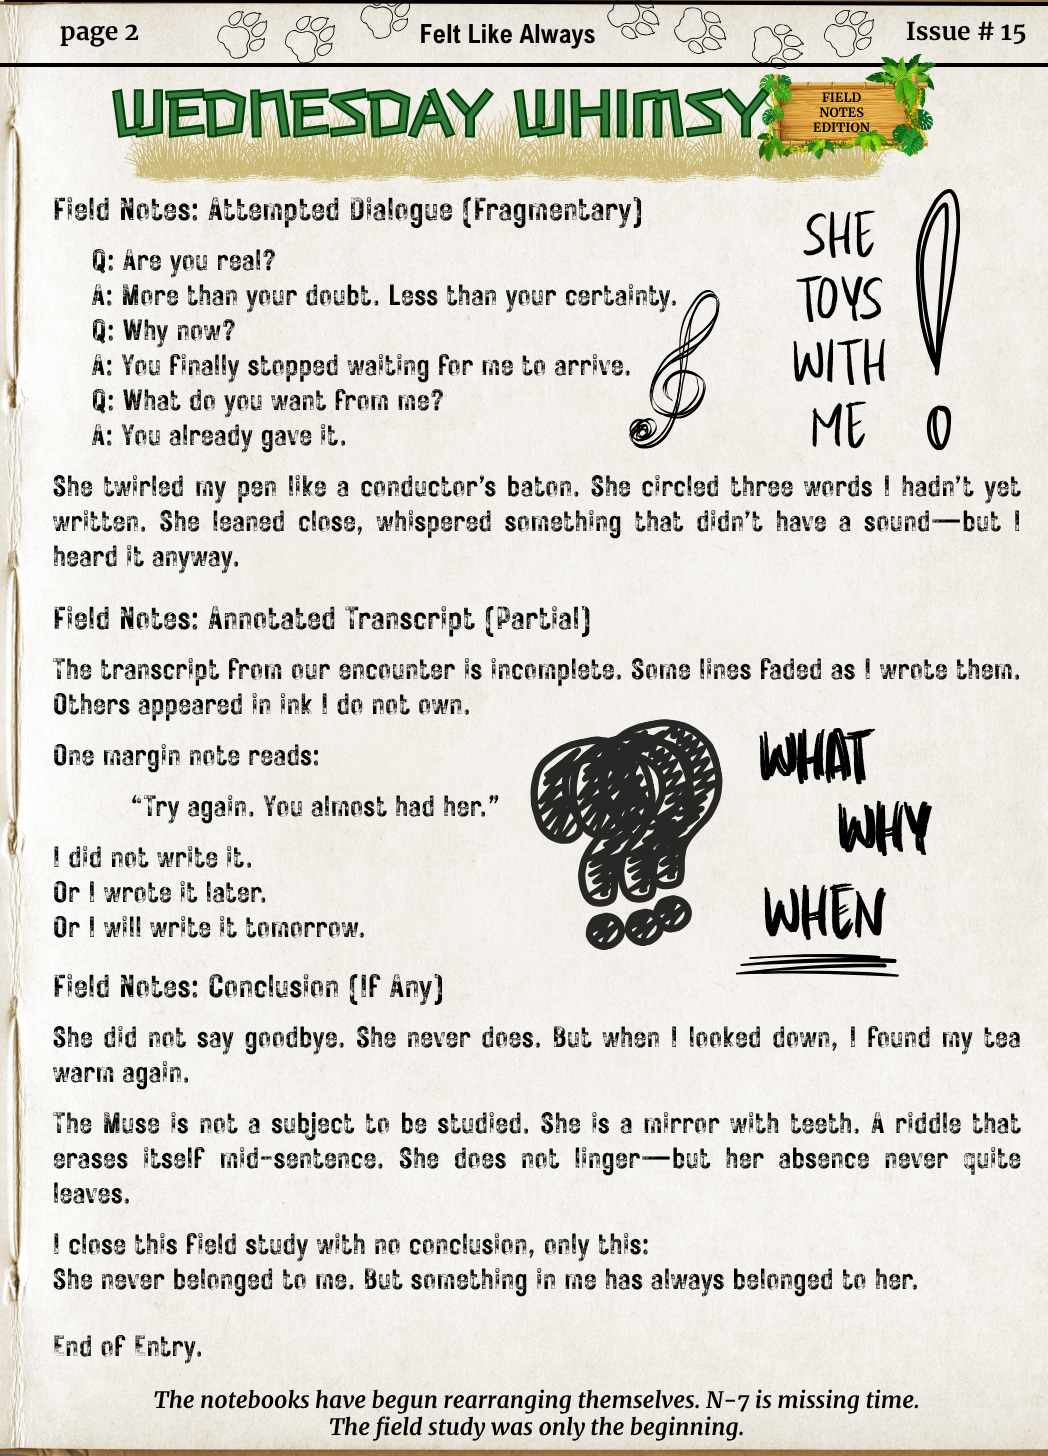 page 2
Felt Like Always
Issue # 15
WEDNESDAY WHIMSY
FIELD
NOTES
EDITION
Field Notes: Attempted Dialogue (Fragmentary)
Q: Are you real?
A: More than your doubt. Less than your certainty.
Q: Why now?
A: You finally stopped waiting for me to arrive.
Q: What do you want from me?
A: You already gave it.
SHE
TOYS
WITH
ME
!
She twirled my pen like a conductor's baton. She circled three words I hadn't yet
written. She leaned close, whispered something that didn't have a sound—but I
heard it anyway.
Field Notes: Annotated Transcript (Partial)
The transcript from our encounter is incomplete. Some lines faded as I wrote them.
Others appeared in ink I do not own.
One margin note reads:
“Try again. You almost had her.”
I did not write it.
Or I wrote it later.
Or I will write it tomorrow.
???
WHAT
WHY
WHEN
Field Notes: Conclusion (If Any)
She did not say goodbye. She never does. But when I looked down, I found my tea
warm again.
The Muse is not a subject to be studied. She is a mirror with teeth. A riddle that
erases itself mid-sentence. She does not linger—but her absence never quite
leaves.
I close this field study with no conclusion, only this:
She never belonged to me. But something in me has always belonged to her.
End of Entry.
The notebooks have begun rearranging themselves. N-7 is missing time.
The field study was only the beginning.